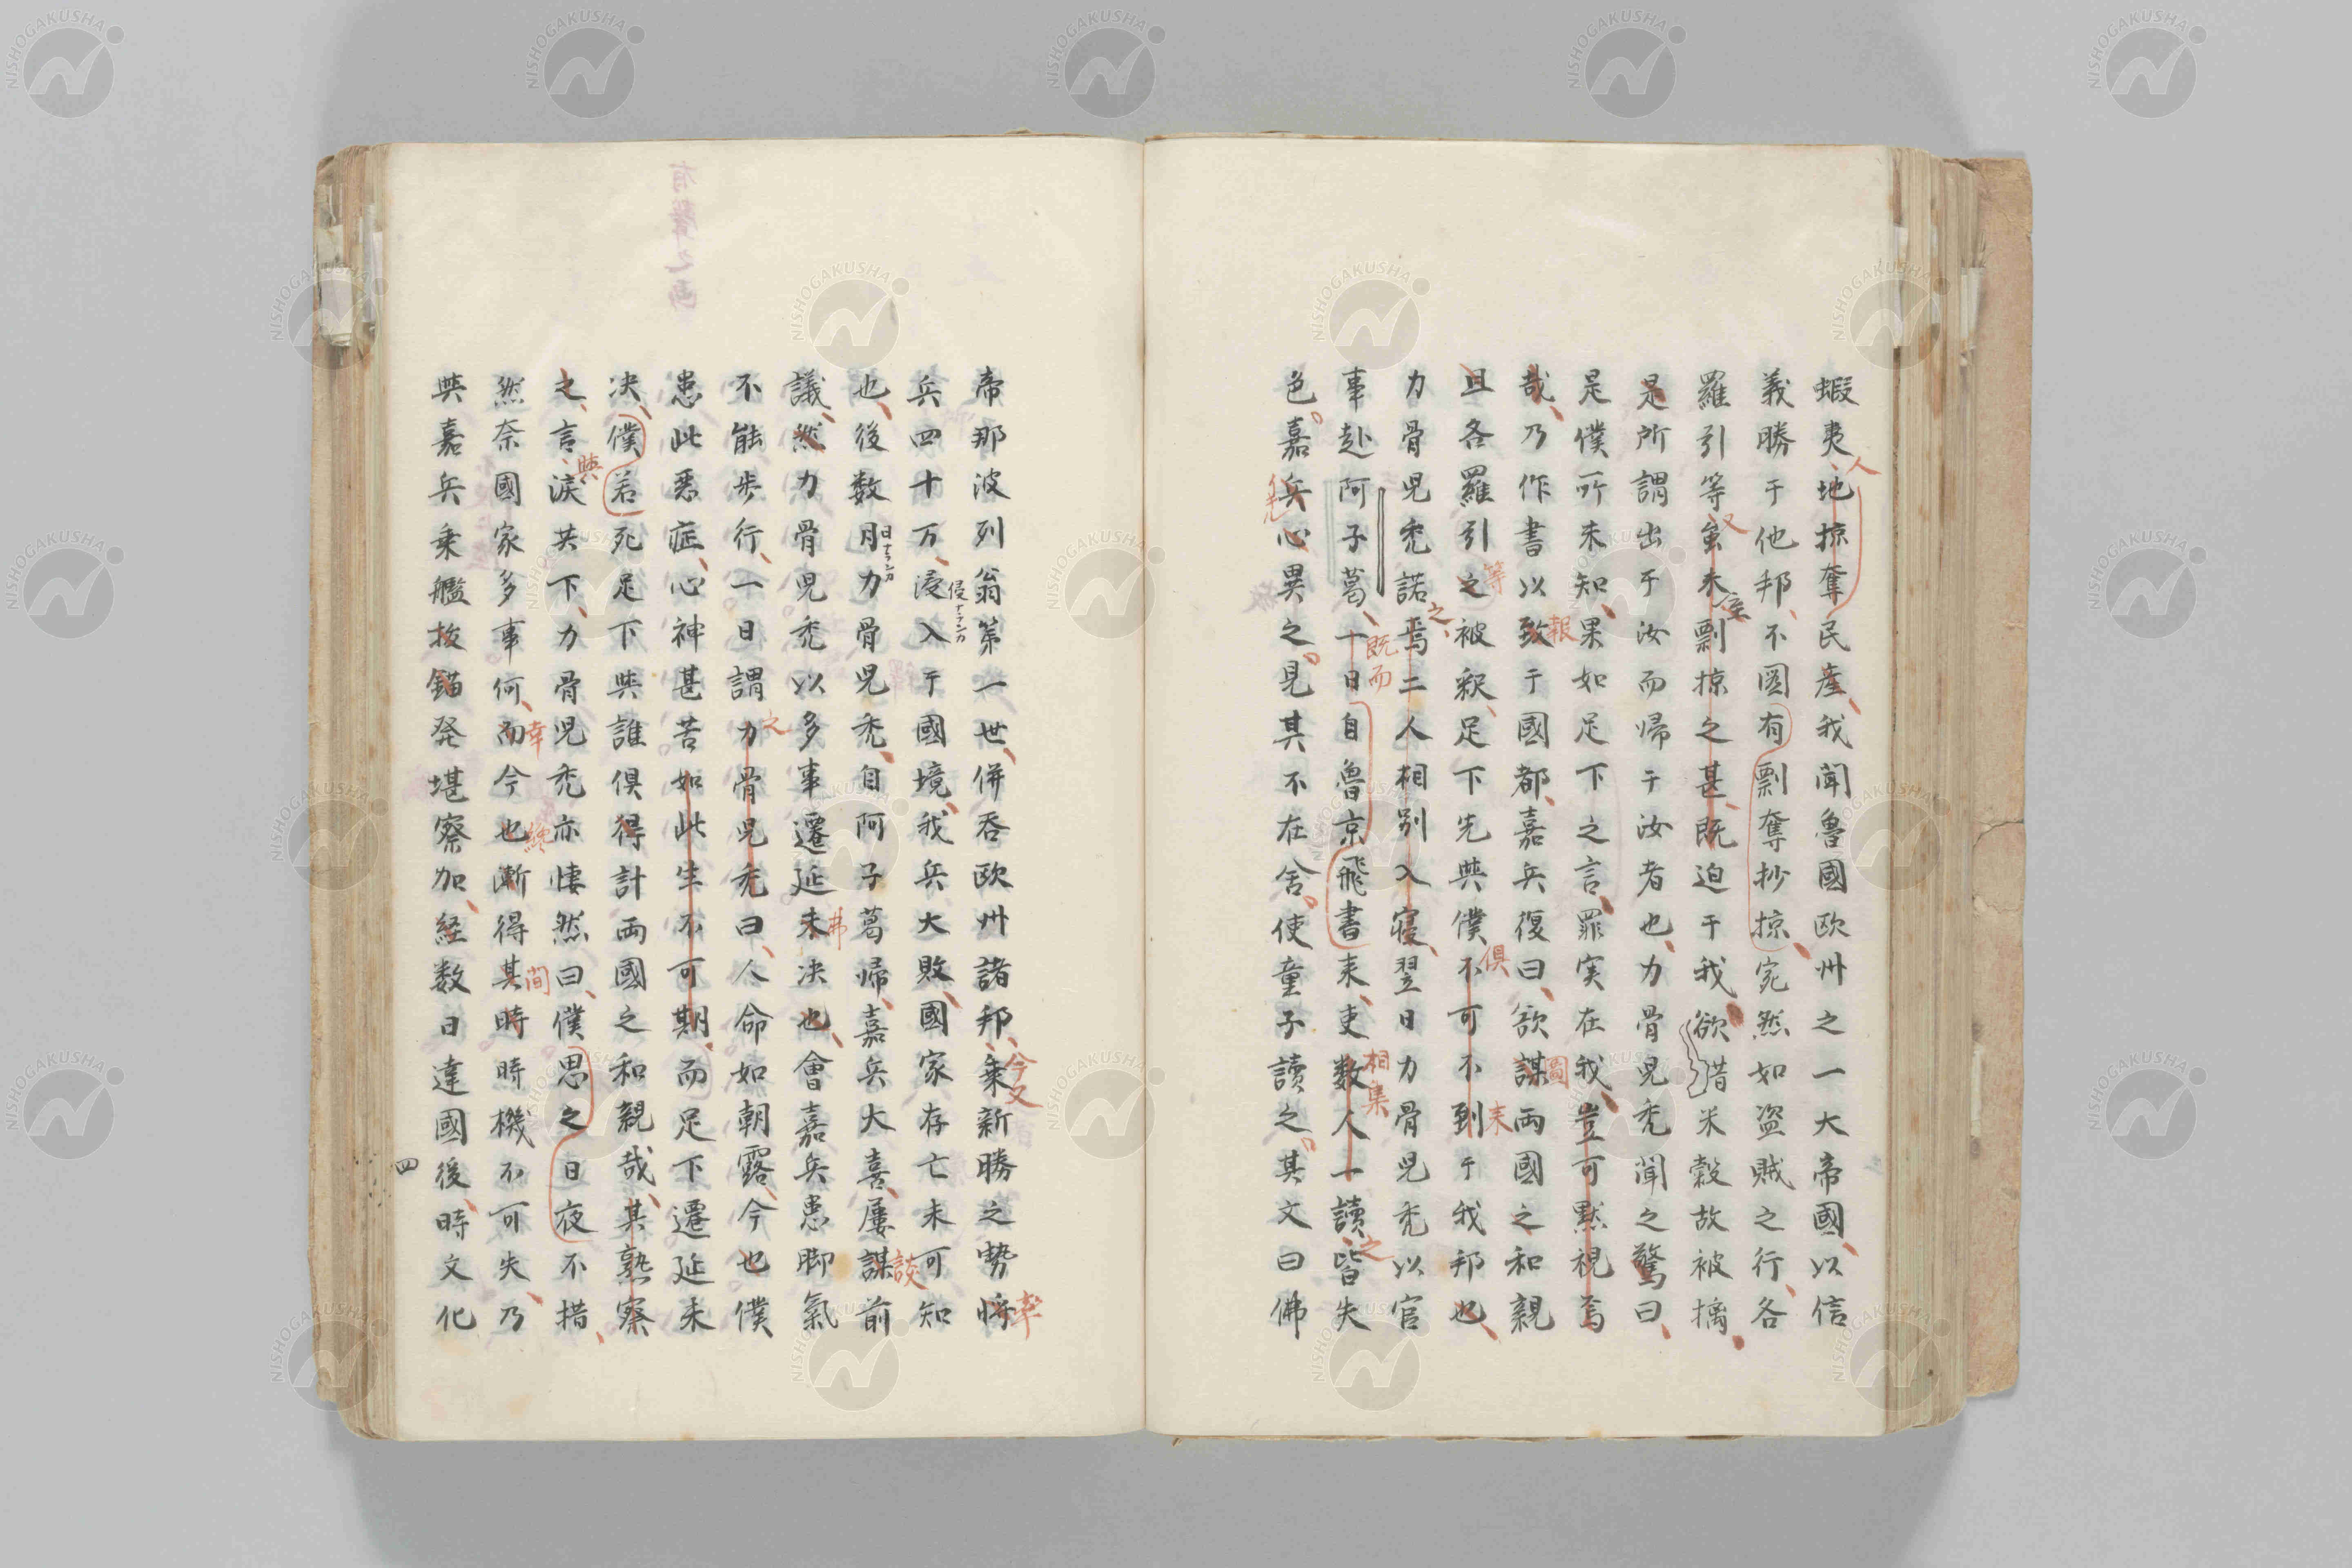 蝦夷地掠奪民産我聞魯國欧州之一大帝國以信
人
義勝于他邦不図有剽奪抄掠宛然如盗賊之行各
羅引等蚩未剽掠之甚既迫于我欲借米穀故被擒
又
至
是所謂出于汝而帰于汝者也力骨児禿聞之驚曰
是僕所未知果如足下之言罪実在我豈可黙視焉
哉乃作書以致于國都嘉兵復曰欲謀両國之和親
報
圖
且各羅引之被釈足下先與僕不可不到于我邦也
等
俱
来
力骨児禿諾焉二人相別入寝翌日力骨児禿以官
之
事赴阿子葛十日自魯京飛書来吏数人一讀皆失
既而
相集
之
色嘉兵心異之見其不在舎使童子讀之其文曰佛
帝那波列翁第一世併呑欧州諸邦乗新勝之勢将
今又
率
兵四十万浸入于國境我兵大敗國家存亡未可知
侵ナランカ
也後数月力骨児禿自阿子葛帰嘉兵大喜屢謀前
日ナランカ
談
議然力骨児禿以多事遷延未决也會嘉兵患脚氣
弗
不能歩行一日謂力骨児禿曰人命如朝露今也僕
之
患此悪症心神甚苦如此生不可期而足下遷延未
决僕若死足下與誰倶得計両國之和親哉其熟察
之言涙共下力骨児禿亦悽然曰僕思之日夜不措
與
然奈國家多事何而今也漸得其時時機不可失乃
幸
終
間
與嘉兵乗艦抜錨発堪察加経数日達國後時文化
四
NISHOGAKUSHA